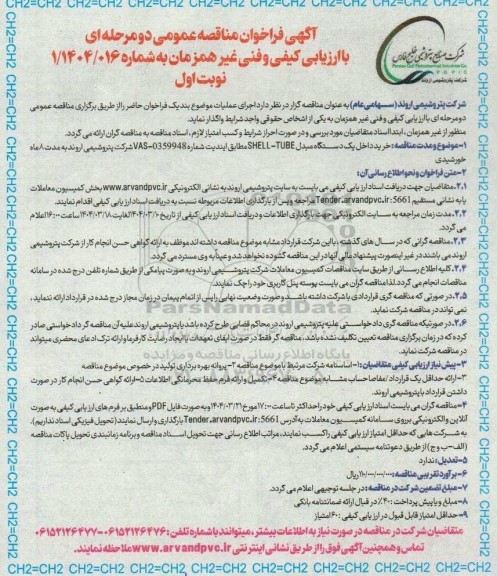 آگهی فراخوان مناقصه عمومی دو مرحله ای
با ارزیابی کیفی و فنی غیر همزمان به شماره ۱/۱۴۰۴/۰۱۶
نوبت اول
شرکت صنایع پتروشیمی خلیج فارس
Persian Gulf Petrochemical Industries Co.
P G P I C
شرکت پتروشیمی اروند
شرکت پتروشیمی اروند (سهامی عام) به عنوان مناقصه گزار در نظر دارد اجرای عملیات موضوع بند یک فراخوان حاضر را از طریق برگزاری مناقصه عمومی
دو مرحله ای با ارزیابی کیفی و فنی غیر همزمان به یکی از اشخاص حقوقی واجد شرایط واگذار نماید.
منظور از غیر همزمان، ابتدا اسناد متقاضیان مورد بررسی و در صورت احراز شرایط و کسب امتیاز لازم، اسناد مناقصه به مناقصه گران ارائه می گردد.
۱-موضوع و مدت مناقصه: خرید داخل یک دستگاه مبدل SHELL-TUBE مطابق ایندنت شماره VAS-0359948 شرکت پتروشیمی اروند به مدت ۸ ماه
خورشیدی
۲-متن فراخوان و نحوه اطلاع رسانی آن:
۲.۱.متقاضیان جهت دریافت اسناد ارزیابی کیفی می بایست به سایت پتروشیمی اروند به نشانی الکترونیکی www.arvandpvc.ir بخش کمیسیون معاملات
یا به نشانی مستقیم Tender.arvandpvc.ir:5661 مراجعه و پس از بارگذاری اطلاعات مربوطه نسبت به دریافت اسناد ارزیابی کیفی اقدام نمایند.
۲.۲.مدت زمان مراجعه به سایت الکترونیکی جهت بارگذاری اطلاعات و دریافت اسناد ارزیابی کیفی از تاریخ ۱۴۰۴/۰۳/۱۰ لغایت ۱۴۰۴/۰۳/۱۸ ساعت ۱۶:۰۰ اعلام
می گردد.
۲.۳.مناقصه گرانی که در سال های گذشته با این شرکت قرارداد مشابه موضوع مناقصه داشته اند موظف به ارائه گواهی حسن انجام کار از شرکت پتروشیمی
اروند می باشند در غیر اینصورت پیشنهاد مالی آنها در این مناقصه گشوده نخواهد شد و عیناً به وی مسترد می گردد.
۲.۴.کلیه اطلاع رسانی از طریق سایت مناقصات کمیسیون معاملات شرکت پتروشیمی اروند و به صورت پیامکی از طریق شماره تلفن درج شده در سامانه
مناقصات انجام می گردد لذا مناقصه گران می بایست پوسته پنل کاربری خود را چک نمایند.
۲.۵.در صورتی که مناقصه گری قراردادی با شرکت داشته باشد و صورت وضعیت نهایی را پس از اتمام پیمان در زمان مجاز درج شده در قرارداد ارائه ننماید،
نمی تواند در مناقصه شرکت نماید.
۲.۶.در صورتیکه مناقصه گری دادخواستی علیه پتروشیمی اروند در محاکم قضایی طرح کرده باشد یا پتروشیمی اروند علیه آن مناقصه گر دادخواستی صادر
کرده که در زمان برگزاری مناقصه تعیین تکلیف نشده باشد، مناقصه گر فقط در صورت ایفای تعهدات یا ایجاد رضایت کارفرما و ارائه ترک ادعای محضری میتواند
در مناقصه شرکت نماید.
ParsNamadData
پایگاه اطلاع رسانی مناقصه و مزایده
۳-پیش نیاز ارزیابی کیفی متقاضیان: ۱-اساسنامه شرکت مرتبط با موضوع مناقصه ۲-پروانه بهره برداری تولید در خصوص موضوع مناقصه
۳-ارائه حداقل یک قرارداد/مفاصا حساب مشابه موضوع مناقصه ۴-تکمیل و ارائه فرم حفظ محرمانگی اطلاعات ۵-ارائه گواهی حسن انجام کار در صورت
داشتن قرارداد با پتروشیمی اروند.
۴-مناقصه گران می بایست اسناد ارزیابی کیفی خود را حداکثر تا ساعت ۱۷:۰۰ مورخ ۱۴۰۴/۰۳/۲۱ و به صورت فایل PDF و منطبق بر فرم های ارزیابی کیفی به صورت
آنلاین و الکترونیکی بر روی سامانه کمیسیون معاملات به آدرس Tender.arvandpvc.ir:5661 بارگذاری و ارسال نمایند (تحویل فیزیکی اسناد نداریم).
به شرکت هایی که حداقل امتیاز ارزیابی کیفی را کسب نمایند، مراتب اطلاع رسانی جهت تحویل اسناد مناقصه و برنامه زمانبندی تحویل پاکات مناقصه
(الف-ب و ج) از طریق دعوتنامه سیستمی اعلام می گردد.
۵-تعدیل: ندارد
۶-برآورد تقریبی مناقصه:
۷-مبلغ تضمین شرکت در مناقصه: در جلسه توجیهی اعلام می گردد.
۸-مبلغ و یا پیش پرداخت: ۳۰٪ در قبال ارائه ضمانتنامه بانکی
۹-حداقل امتیاز قابل قبول در ارزیابی کیفی: ۶۰ امتیاز
متقاضیان شرکت در مناقصه در صورت نیاز به اطلاعات بیشتر، میتوانند با شماره تلفن: ۰۶۱۵۲۱۲۶۴۷۶-۰۶۱۵۲۱۲۶۴۷۷
تماس و همچنین آگهی فوق را از طریق نشانی اینترنتی www.arvandpvc.ir ملاحظه نمایند.
CH2=CH2 CH2=CH2 CH2=CH2 CH2=CH2 CH2=CH2 CH2=CH2 CH2=CH2 CH2=CH2